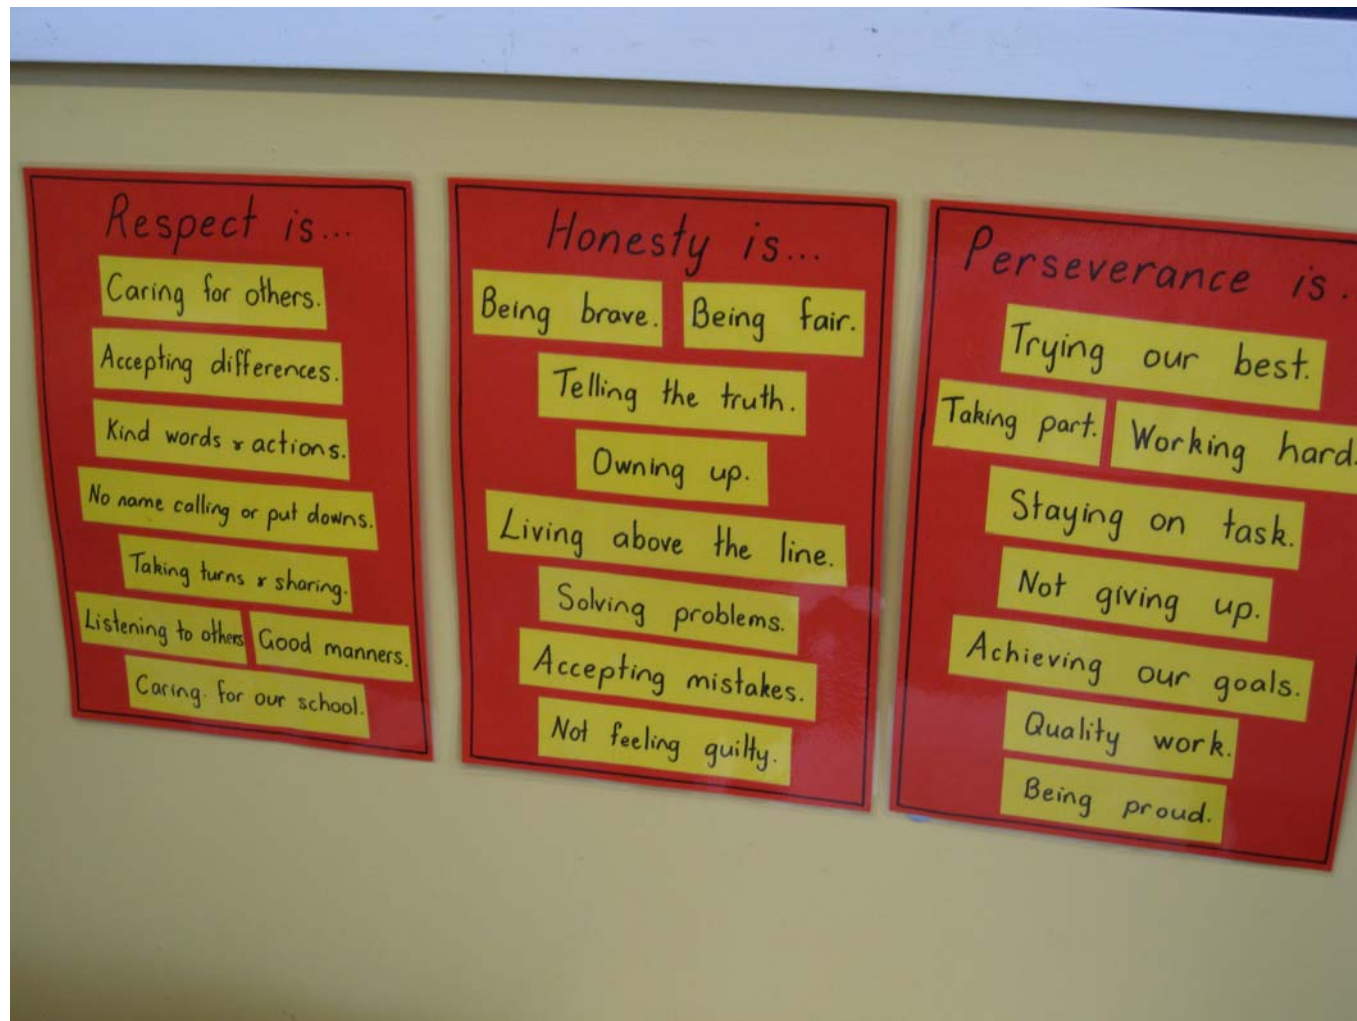 Respect is...
Caring for others.
Accepting differences.
Kind words & actions.
No name calling or put downs.
Taking turns & sharing.
Listening to others
Good manners.
Caring. for our school.
Honesty is...
Being brave. Being fair.
Telling the truth.
Owning up.
Living above the line.
Solving problems.
Accepting mistakes.
Not feeling guilty.
Perseverance is.
Trying our best.
Taking part. Working hard.
Staying on task.
Not giving up.
Achieving our goals.
Quality work.
Being proud.